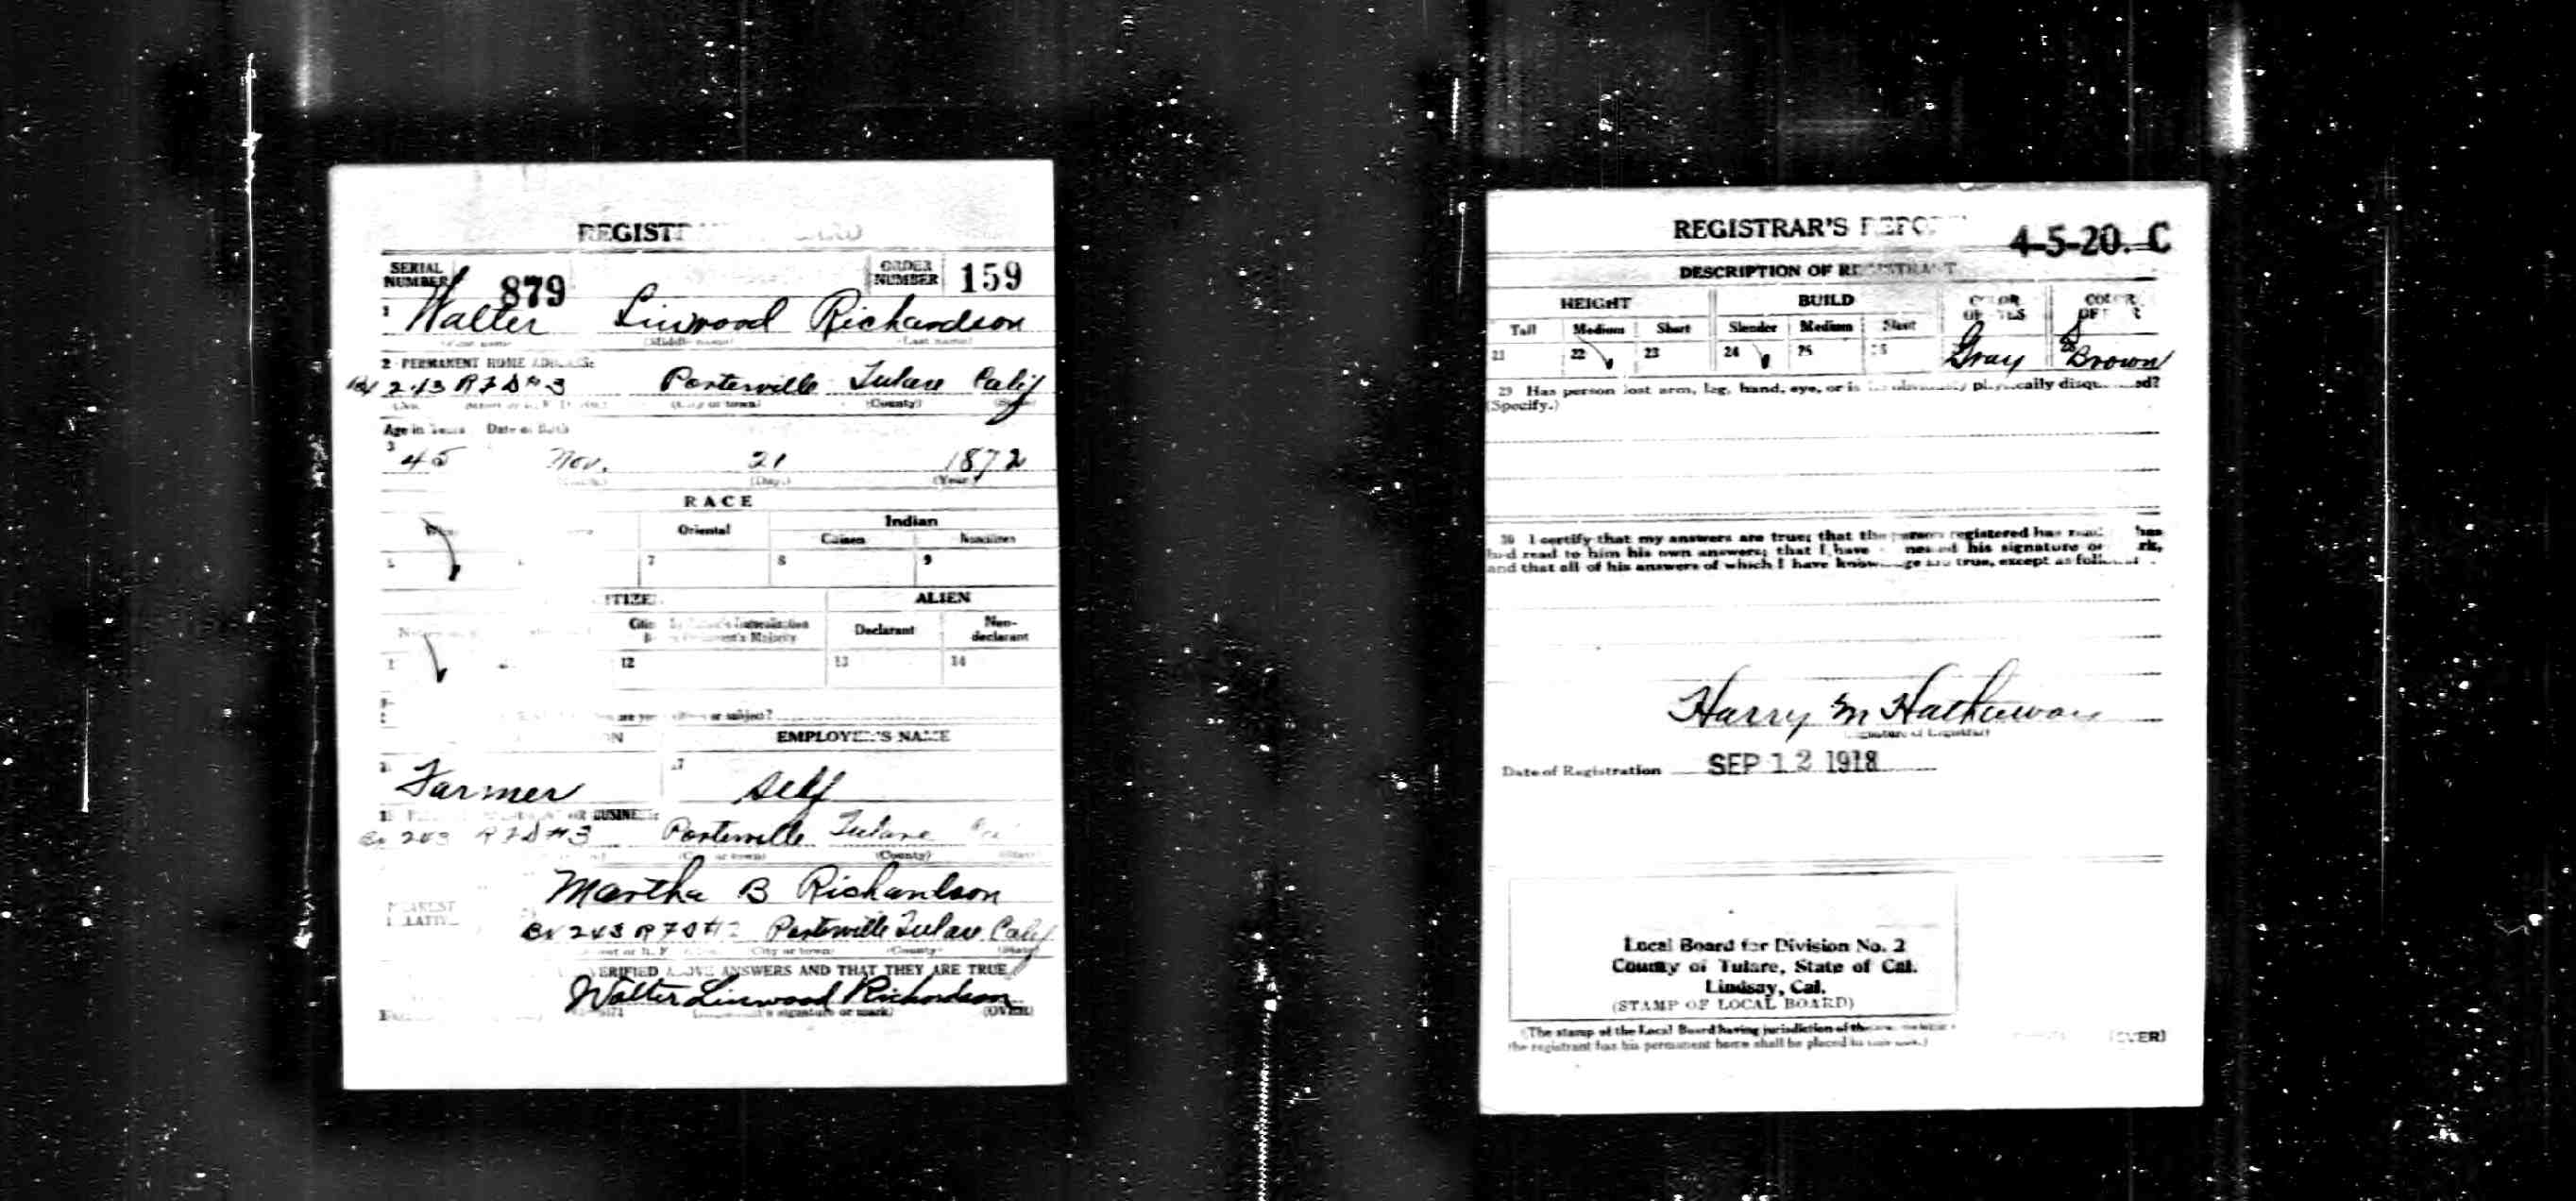 REGIST
SERIAL NUMBER 879 ORDER NUMBER 159
1 Walter Linwood Richardson
(Middle name) (Last name)
2 PERMANENT HOME ADDRESS:
Bx 243 RFD #3 Porterville Tulare Calif
(City or town) (County) (State)
Age in Years Date of Birth
3 45 Nov. 21 1872
(Day.) (Year)
RACE
Oriental Indian
Citizen Noncitizen
7 8 9
ALIEN
Declarant Non-declarant
12 13 14
are you citizen or subject?
EMPLOYER'S NAME
17
Farmer self
OR BUSINESS:
Bx 243 RFD #3 Porterville Tulare
(City or town) (County) (State)
NEAREST RELATIVE
Martha B Richardson
Bx 243 RFD # Porterville Tulare Calif
(City or town) (County) (State)
VERIFIED ABOVE ANSWERS AND THAT THEY ARE TRUE
Walter Linwood Richardson
signature or mark) (OVER)
REGISTRAR'S REPORT
4-5-20. C
DESCRIPTION OF REGISTRANT
HEIGHT BUILD COLOR OF EYES COLOR OF
Tall Medium Short Slender Medium Stout
21 22 23 24 25 26 Gray 28 Brown
29 Has person lost arm, leg, hand, eye, or is he obviously physically disqualified?
(Specify.)
30 I certify that my answers are true; that the person registered has read or has
had read to him his own answers; that I have witnessed his signature or mark,
and that all of his answers of which I have knowledge are true, except as follows:
Harry M Hathaway
(Signature of Registrar)
Date of Registration SEP 12 1918
Local Board for Division No. 2
County of Tulare, State of Cal.
Lindsay, Cal.
(STAMP OF LOCAL BOARD)
(The stamp of the Local Board having jurisdiction of the area in which
the registrant has his permanent home shall be placed in this box.)
(OVER)